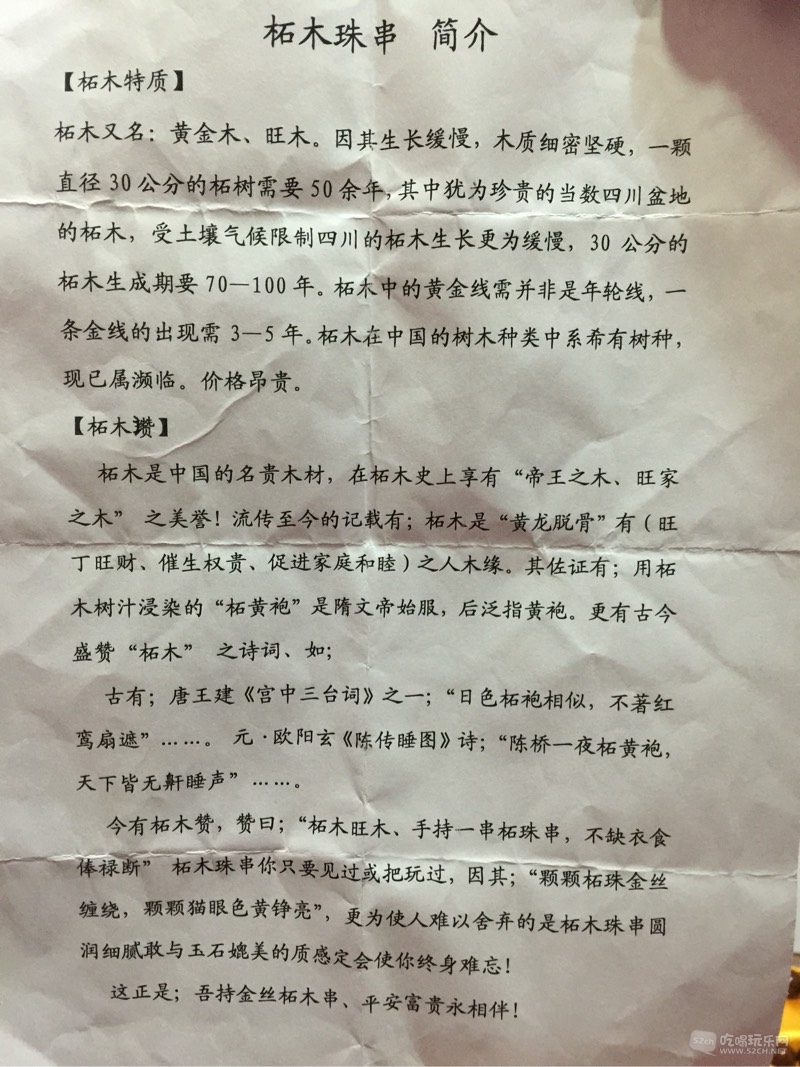 柘木珠串 简介
【柘木特质】
柘木又名：黄金木、旺木。因其生长缓慢，木质细密坚硬，一颗
直径 30 公分的柘树需要 50 余年，其中犹为珍贵的当数四川盆地
的柘木，受土壤气候限制四川的柘木生长更为缓慢，30 公分的
柘木生成期要 70—100 年。柘木中的黄金线需并非是年轮线，一
条金线的出现需 3—5 年。柘木在中国的树木种类中系希有树种，
现已属濒临。价格昂贵。
【柘木瓒】
柘木是中国的名贵木材，在柘木史上享有“帝王之木、旺家
之木” 之美誉！流传至今的记载有；柘木是“黄龙脱骨”有（旺
丁旺财、催生权贵、促进家庭和睦）之人木缘。其佐证有；用柘
木树汁浸染的“柘黄袍”是隋文帝始服，后泛指黄袍。更有古今
盛赞“柘木” 之诗词、如；
古有；唐王建《宫中三台词》之一；“日色柘袍相似，不著红
鸾扇遮”……。 元·欧阳玄《陈传睡图》诗；“陈桥一夜柘黄袍，
天下皆无鼾睡声”……。
今有柘木赞，赞曰；“柘木旺木、手持一串柘珠串，不缺衣食
俸禄断” 柘木珠串你只要见过或把玩过，因其；“颗颗柘珠金丝
缠绕，颗颗猫眼色黄铮亮”，更为使人难以舍弃的是柘木珠串圆
润细腻敢与玉石媲美的质感定会使你终身难忘！
这正是；吾持金丝柘木串、平安富贵永相伴！
SZch 吃喝玩乐网
WWW.SZCH.NET